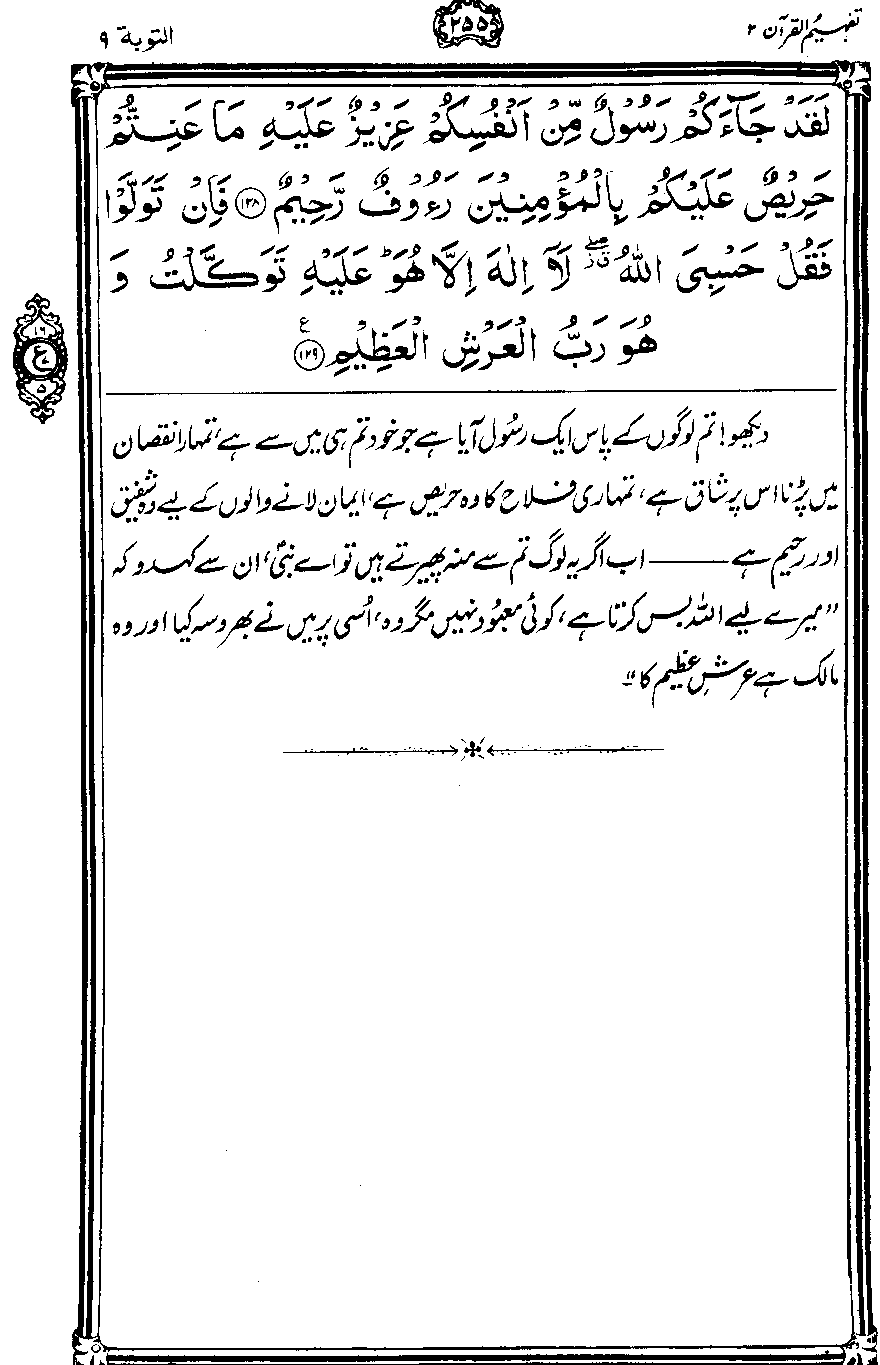 تفہیم القرآن ۲
۲۵۵
التوبۃ ۹
لَقَدْ جَآءَكُمْ رَسُوْلٌ مِّنْ اَنْفُسِكُمْ عَزِيْزٌ عَلَيْهِ مَا عَنِتُّمْ
حَرِيْصٌ عَلَيْكُمْ بِالْمُؤْمِنِيْنَ رَءُوْفٌ رَّحِيْمٌ ﴿۱۲۸﴾ فَاِنْ تَوَلَّوْا
فَقُلْ حَسْبِيَ اللّٰهُ ۖ لَآ اِلٰهَ اِلَّا هُوَ ؕ عَلَيْهِ تَوَكَّلْتُ وَ
هُوَ رَبُّ الْعَرْشِ الْعَظِيْمِ ﴿۱۲۹﴾ ع
۱۶
ع
۵
دیکھو! تم لوگوں کے پاس ایک رسُول آیا ہے جو خود تم ہی میں سے ہے، تمہارا نقصان
میں پڑنا اس پر شاق ہے، تمہاری فلاح کا وہ حریص ہے، ایمان لانے والوں کے لیے وہ شفیق
اور رحیم ہے ـــــــ اب اگر یہ لوگ تم سے منہ پھیرتے ہیں تو اے نبیؐ، ان سے کہدو کہ
”میرے لیے اللہ بس کرتا ہے، کوئی معبُود نہیں مگر وہ، اُسی پر میں نے بھروسہ کیا اور وہ
مالک ہے عرشِ عظیم کا۔“